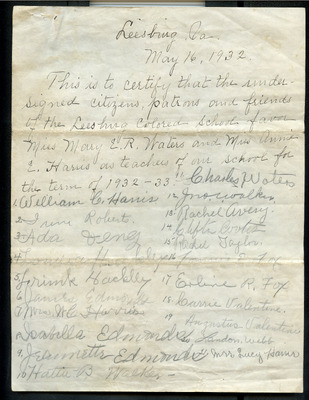 Leesburg, Va.
May 16, 1932.
This is to certify that the under-
signed citizens, patrons and friends
of the Leesburg Colored School favor
Miss Mary R. Waters and Miss Annie
L. Harris as teachers of our school for
the term of 1932-33.
11 Charles J Waters
1 William C. Harris 12
2 Irene Roberts. 13 Rachel Avery.
3 Ada 14
4 15 Taylor.
Fox
5 Frank 17 Erline R. Fox
6 James Edmonds 18 Carrie Valentine.
7 Mrs. W C Harris 19 Augustus Valentine
8 Isabella Edmonds 20 Landon Webb
9 Jeannette Edmonds 21 Mrs Lucy Harris
10 Hattie B Walker